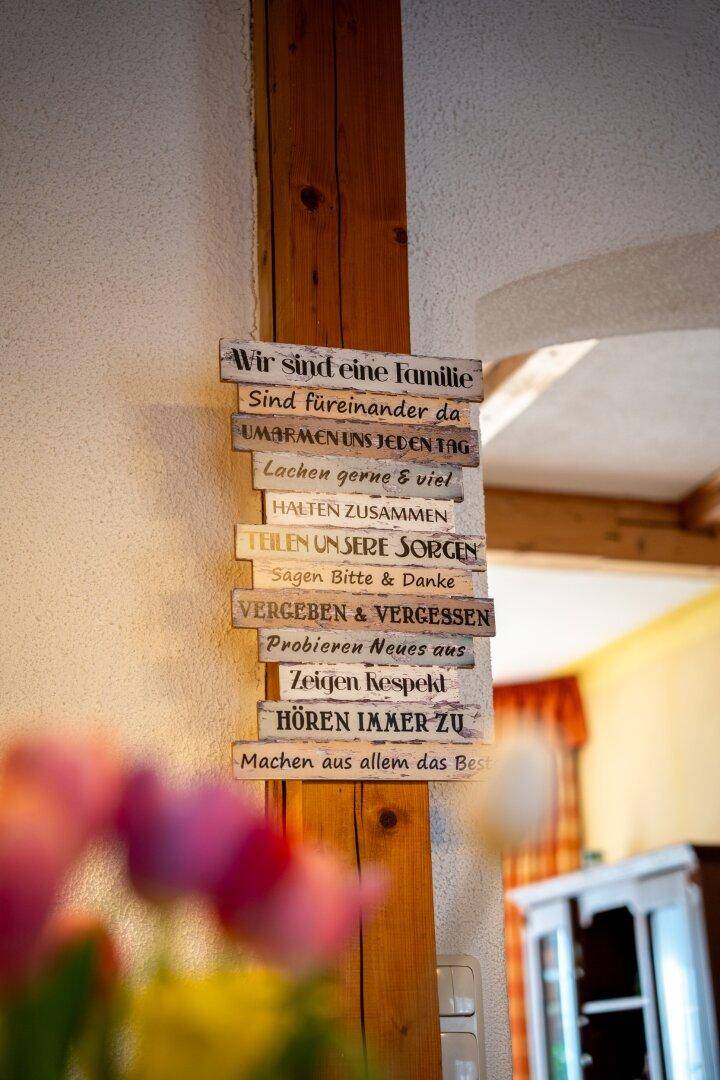 Wir sind eine Familie
Sind füreinander da
UMARMEN UNS JEDEN TAG
Lachen gerne & viel
HALTEN ZUSAMMEN
TEILEN UNSERE SORGEN
Sagen Bitte & Danke
VERGEBEN & VERGESSEN
Probieren Neues aus
Zeigen Respekt
HÖREN IMMER ZU
Machen aus allem das Best